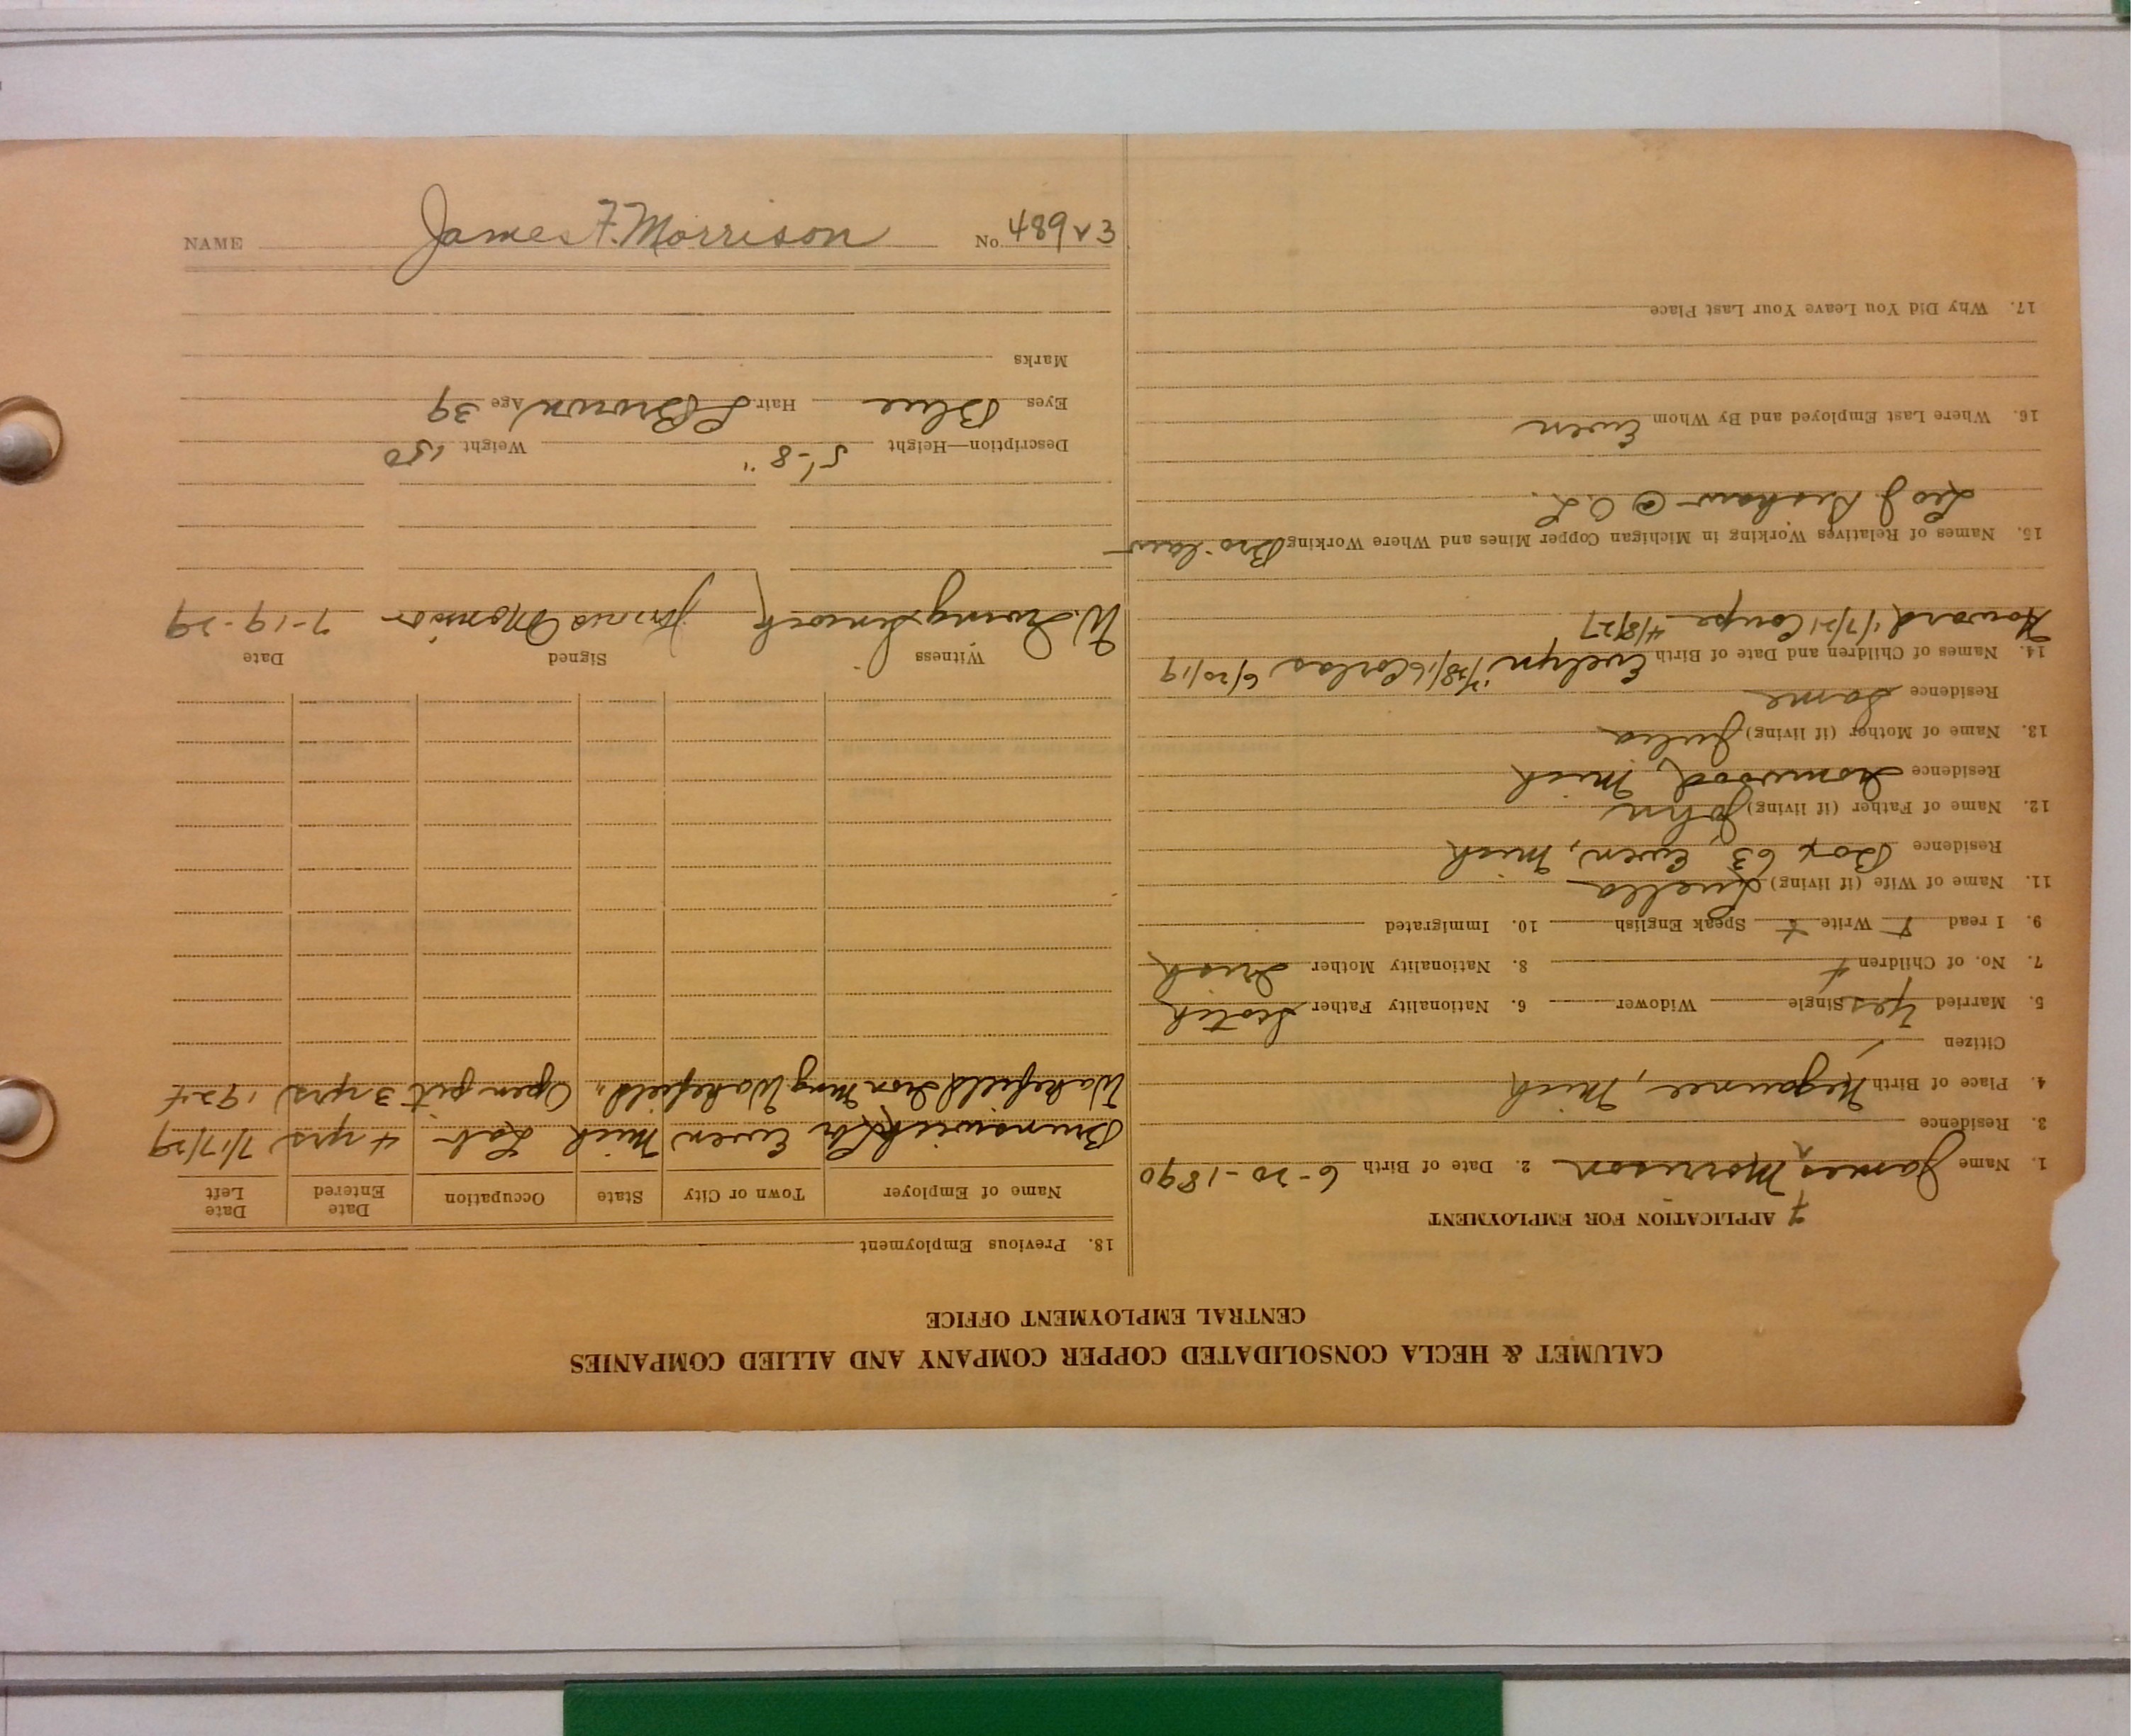 CALUMET & HECLA CONSOLIDATED COPPER COMPANY AND ALLIED COMPANIES
CENTRAL EMPLOYMENT OFFICE
APPLICATION FOR EMPLOYMENT
1. Name James F Morrison 2. Date of Birth 6-20-1890
3. Residence
4. Place of Birth Negaunee, Mich
Citizen
5. Married Yes Single Widower 6. Nationality Father Scotch
7. No. of Children 4 8. Nationality Mother Irish
9. I read Write Speak English 10. Immigrated
11. Name of Wife (if living) Luella
Residence Box 63 Ewen, Mich
12. Name of Father (if living) John
Residence Ironwood, Mich
13. Name of Mother (if living) Julia
Residence Same
14. Names of Children and Date of Birth Evelyn Carlas 6/20/19
Howard 1/7/21 4/8/27
15. Names of Relatives Working in Michigan Copper Mines and Where Working Bro law
Leo J. @ O.L.
16. Where Last Employed and By Whom Ewen
17. Why Did You Leave Your Last Place
18. Previous Employment
Name of Employer Town or City State Occupation Date Entered Date Left
Brunswick Ewen Mich Lab 4 yrs 7/17/29
Wakefield Iron Mng Wakefield " Open pit 3 yrs 1924
Witness Signed Date
W. James Morrison 7-19-29
Description—Height 5'-8" Weight 150
Eyes Blue Hair L Brown Age 39
Marks
NAME James F. Morrison No. 489v3